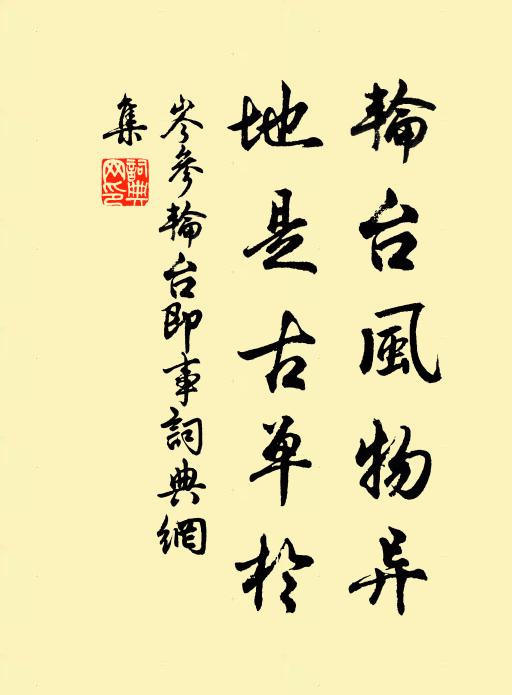 輪台風物异
地是古单於
岑參輪台即事詞典網
集
詞典
网印